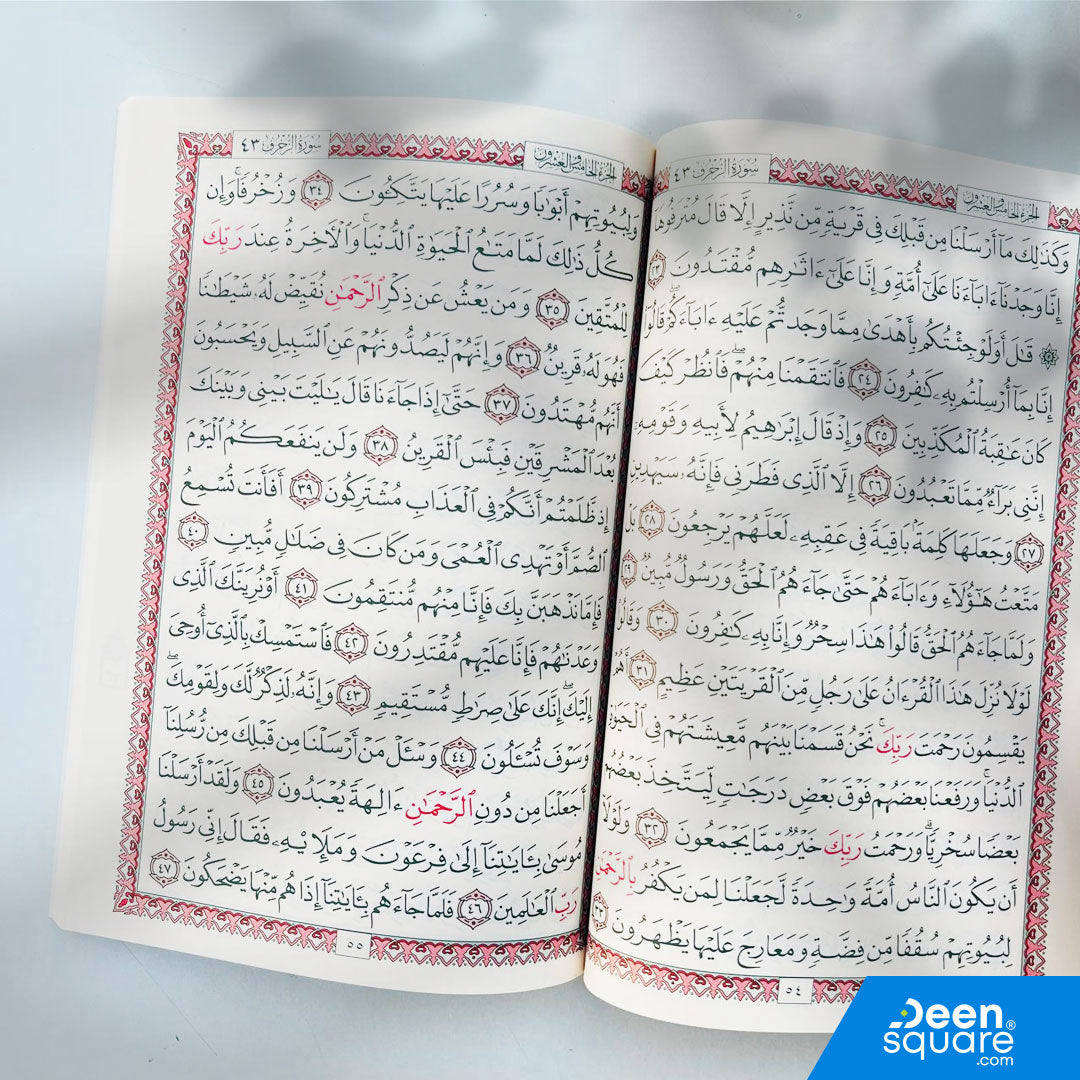 سُورَةُ الزُّخْرُفِ ٤٣
الجُزْءُ الخَامِسُ وَالعِشْرُونَ
وَكَذَٰلِكَ مَآ أَرْسَلْنَا مِن قَبْلِكَ فِى قَرْيَةٍ مِّن نَّذِيرٍ إِلَّا قَالَ مُتْرَفُوهَآ
إِنَّا وَجَدْنَآ ءَابَآءَنَا عَلَىٰٓ أُمَّةٍ وَإِنَّا عَلَىٰٓ ءَاثَٰرِهِم مُّقْتَدُونَ ٢٣
۞ قَٰلَ أَوَلَوْ جِئْتُكُم بِأَهْدَىٰ مِمَّا وَجَدتُّمْ عَلَيْهِ ءَابَآءَكُمْ ۖ قَالُوٓا۟
إِنَّا بِمَآ أُرْسِلْتُم بِهِۦ كَٰفِرُونَ ٢٤ فَٱنتَقَمْنَا مِنْهُمْ ۖ فَٱنظُرْ كَيْفَ
كَانَ عَٰقِبَةُ ٱلْمُكَذِّبِينَ ٢٥ وَإِذْ قَالَ إِبْرَٰهِيمُ لِأَبِيهِ وَقَوْمِهِۦٓ
إِنَّنِى بَرَآءٌ مِّمَّا تَعْبُدُونَ ٢٦ إِلَّا ٱلَّذِى فَطَرَنِى فَإِنَّهُۥ سَيَهْدِينِ
٢٧ وَجَعَلَهَا كَلِمَةًۢ بَاقِيَةً فِى عَقِبِهِۦ لَعَلَّهُمْ يَرْجِعُونَ ٢٨ بَلْ
مَتَّعْتُ هَٰٓؤُلَآءِ وَءَابَآءَهُمْ حَتَّىٰ جَآءَهُمُ ٱلْحَقُّ وَرَسُولٌ مُّبِينٌ ٢٩
وَلَمَّا جَآءَهُمُ ٱلْحَقُّ قَالُوا۟ هَٰذَا سِحْرٌ وَإِنَّا بِهِۦ كَٰفِرُونَ ٣٠ وَقَالُوا۟
لَوْلَا نُزِّلَ هَٰذَا ٱلْقُرْءَانُ عَلَىٰ رَجُلٍ مِّنَ ٱلْقَرْيَتَيْنِ عَظِيمٍ ٣١ أَهُمْ
يَقْسِمُونَ رَحْمَتَ رَبِّكَ ۚ نَحْنُ قَسَمْنَا بَيْنَهُم مَّعِيشَتَهُمْ فِى ٱلْحَيَوٰةِ
ٱلدُّنْيَا ۚ وَرَفَعْنَا بَعْضَهُمْ فَوْقَ بَعْضٍ دَرَجَٰتٍ لِّيَتَّخِذَ بَعْضُهُم
بَعْضًا سُخْرِيًّا ۗ وَرَحْمَتُ رَبِّكَ خَيْرٌ مِّمَّا يَجْمَعُونَ ٣٢ وَلَوْلَآ
أَن يَكُونَ ٱلنَّاسُ أُمَّةً وَٰحِدَةً لَّجَعَلْنَا لِمَن يَكْفُرُ بِٱلرَّحْمَٰنِ
لِبُيُوتِهِمْ سُقُفًا مِّن فِضَّةٍ وَمَعَارِجَ عَلَيْهَا يَظْهَرُونَ ٣٣
٥٤
سُورَةُ الزُّخْرُفِ ٤٣
الجُزْءُ الخَامِسُ وَالعِشْرُونَ
وَلِبُيُوتِهِمْ أَبْوَٰبًا وَسُرُرًا عَلَيْهَا يَتَّكِـُٔونَ ٣٤ وَزُخْرُفًا ۚ وَإِن
كُلُّ ذَٰلِكَ لَمَّا مَتَٰعُ ٱلْحَيَوٰةِ ٱلدُّنْيَا ۚ وَٱلْءَاخِرَةُ عِندَ رَبِّكَ
لِلْمُتَّقِينَ ٣٥ وَمَن يَعْشُ عَن ذِكْرِ ٱلرَّحْمَٰنِ نُقَيِّضْ لَهُۥ شَيْطَٰنًا
فَهُوَ لَهُۥ قَرِينٌ ٣٦ وَإِنَّهُمْ لَيَصُدُّونَهُمْ عَنِ ٱلسَّبِيلِ وَيَحْسَبُونَ
أَنَّهُم مُّهْتَدُونَ ٣٧ حَتَّىٰٓ إِذَا جَآءَنَا قَالَ يَٰلَيْتَ بَيْنِى وَبَيْنَكَ
بُعْدَ ٱلْمَشْرِقَيْنِ فَبِئْسَ ٱلْقَرِينُ ٣٨ وَلَن يَنفَعَكُمُ ٱلْيَوْمَ
إِذ ظَّلَمْتُمْ أَنَّكُمْ فِى ٱلْعَذَابِ مُشْتَرِكُونَ ٣٩ أَفَأَنتَ تُسْمِعُ
ٱلصُّمَّ أَوْ تَهْدِى ٱلْعُمْىَ وَمَن كَانَ فِى ضَلَٰلٍ مُّبِينٍ ٤٠
فَإِمَّا نَذْهَبَنَّ بِكَ فَإِنَّا مِنْهُم مُّنتَقِمُونَ ٤١ أَوْ نُرِيَنَّكَ ٱلَّذِى
وَعَدْنَٰهُمْ فَإِنَّا عَلَيْهِم مُّقْتَدِرُونَ ٤٢ فَٱسْتَمْسِكْ بِٱلَّذِىٓ أُوحِىَ
إِلَيْكَ ۖ إِنَّكَ عَلَىٰ صِرَٰطٍ مُّسْتَقِيمٍ ٤٣ وَإِنَّهُۥ لَذِكْرٌ لَّكَ وَلِقَوْمِكَ ۖ
وَسَوْفَ تُسْـَٔلُونَ ٤٤ وَسْـَٔلْ مَنْ أَرْسَلْنَا مِن قَبْلِكَ مِن رُّسُلِنَآ
أَجَعَلْنَا مِن دُونِ ٱلرَّحْمَٰنِ ءَالِهَةً يُعْبَدُونَ ٤٥ وَلَقَدْ أَرْسَلْنَا
مُوسَىٰ بِـَٔايَٰتِنَآ إِلَىٰ فِرْعَوْنَ وَمَلَإِي۟هِۦ فَقَالَ إِنِّى رَسُولُ
رَبِّ ٱلْعَٰلَمِينَ ٤٦ فَلَمَّا جَآءَهُم بِـَٔايَٰتِنَآ إِذَا هُم مِّنْهَا يَضْحَكُونَ ٤٧
٥٥
Deen
square®
.com